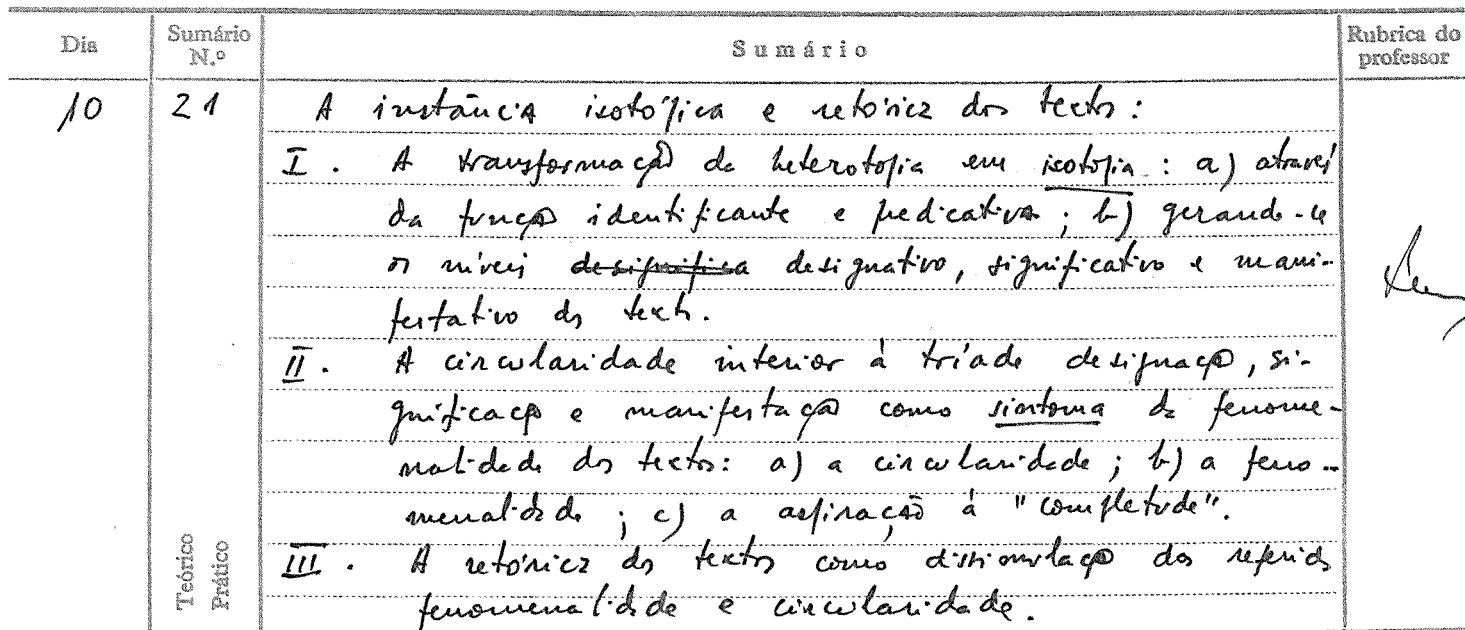 Dia Sumário N.º Sumário Rubrica do professor
10 21 A instância isotópica e retórica dos textos:
I. A transformação da heterotopia em isotopia: a) através
da função identificante e predicativa; b) gerando-se
os níveis designifica designativo, significativo e mani-
festativo dos textos.
II. A circularidade interior à tríade designação, si-
gnificação e manifestação como sintoma da fenome-
nalidade dos textos: a) a circularidade; b) a feno-
menalidade; c) a aspiração à "completude".
Teórico Prático
III. A retórica dos textos como dissimulação da referida
fenomenalidade e circularidade.